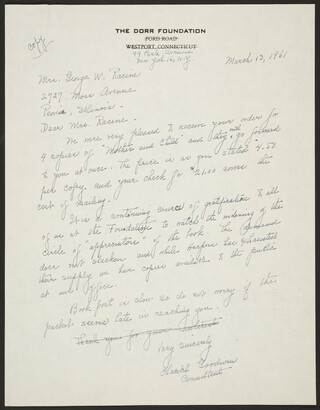 copy
THE DORR FOUNDATION
FORD ROAD
WESTPORT, CONNECTICUT
99 Park Avenue
New York 16, N.Y.
March 12, 1961
Mrs. George W. Racine
2727 Moss Avenue
Peoria, Illinois.
Dear Mrs. Racine.
We are very pleased to receive your order for
4 copies of "Mother and Child" and they will go forward
to you at once. The price is as you stated 4.50
per copy and your check for $21.00 covers the
cost of mailing.
It is a continuing source of gratification to all
of us at the Foundation to watch the widening of the
circle of "appreciators" of the book. The demand
does not slacken and while Harpers has exhausted
their supply we have copies available to the public
at our office.
Book post is slow so do not worry if the
packet seems late in reaching you.
Thank you for your interest
Very sincerely
Goodwin
Consultant